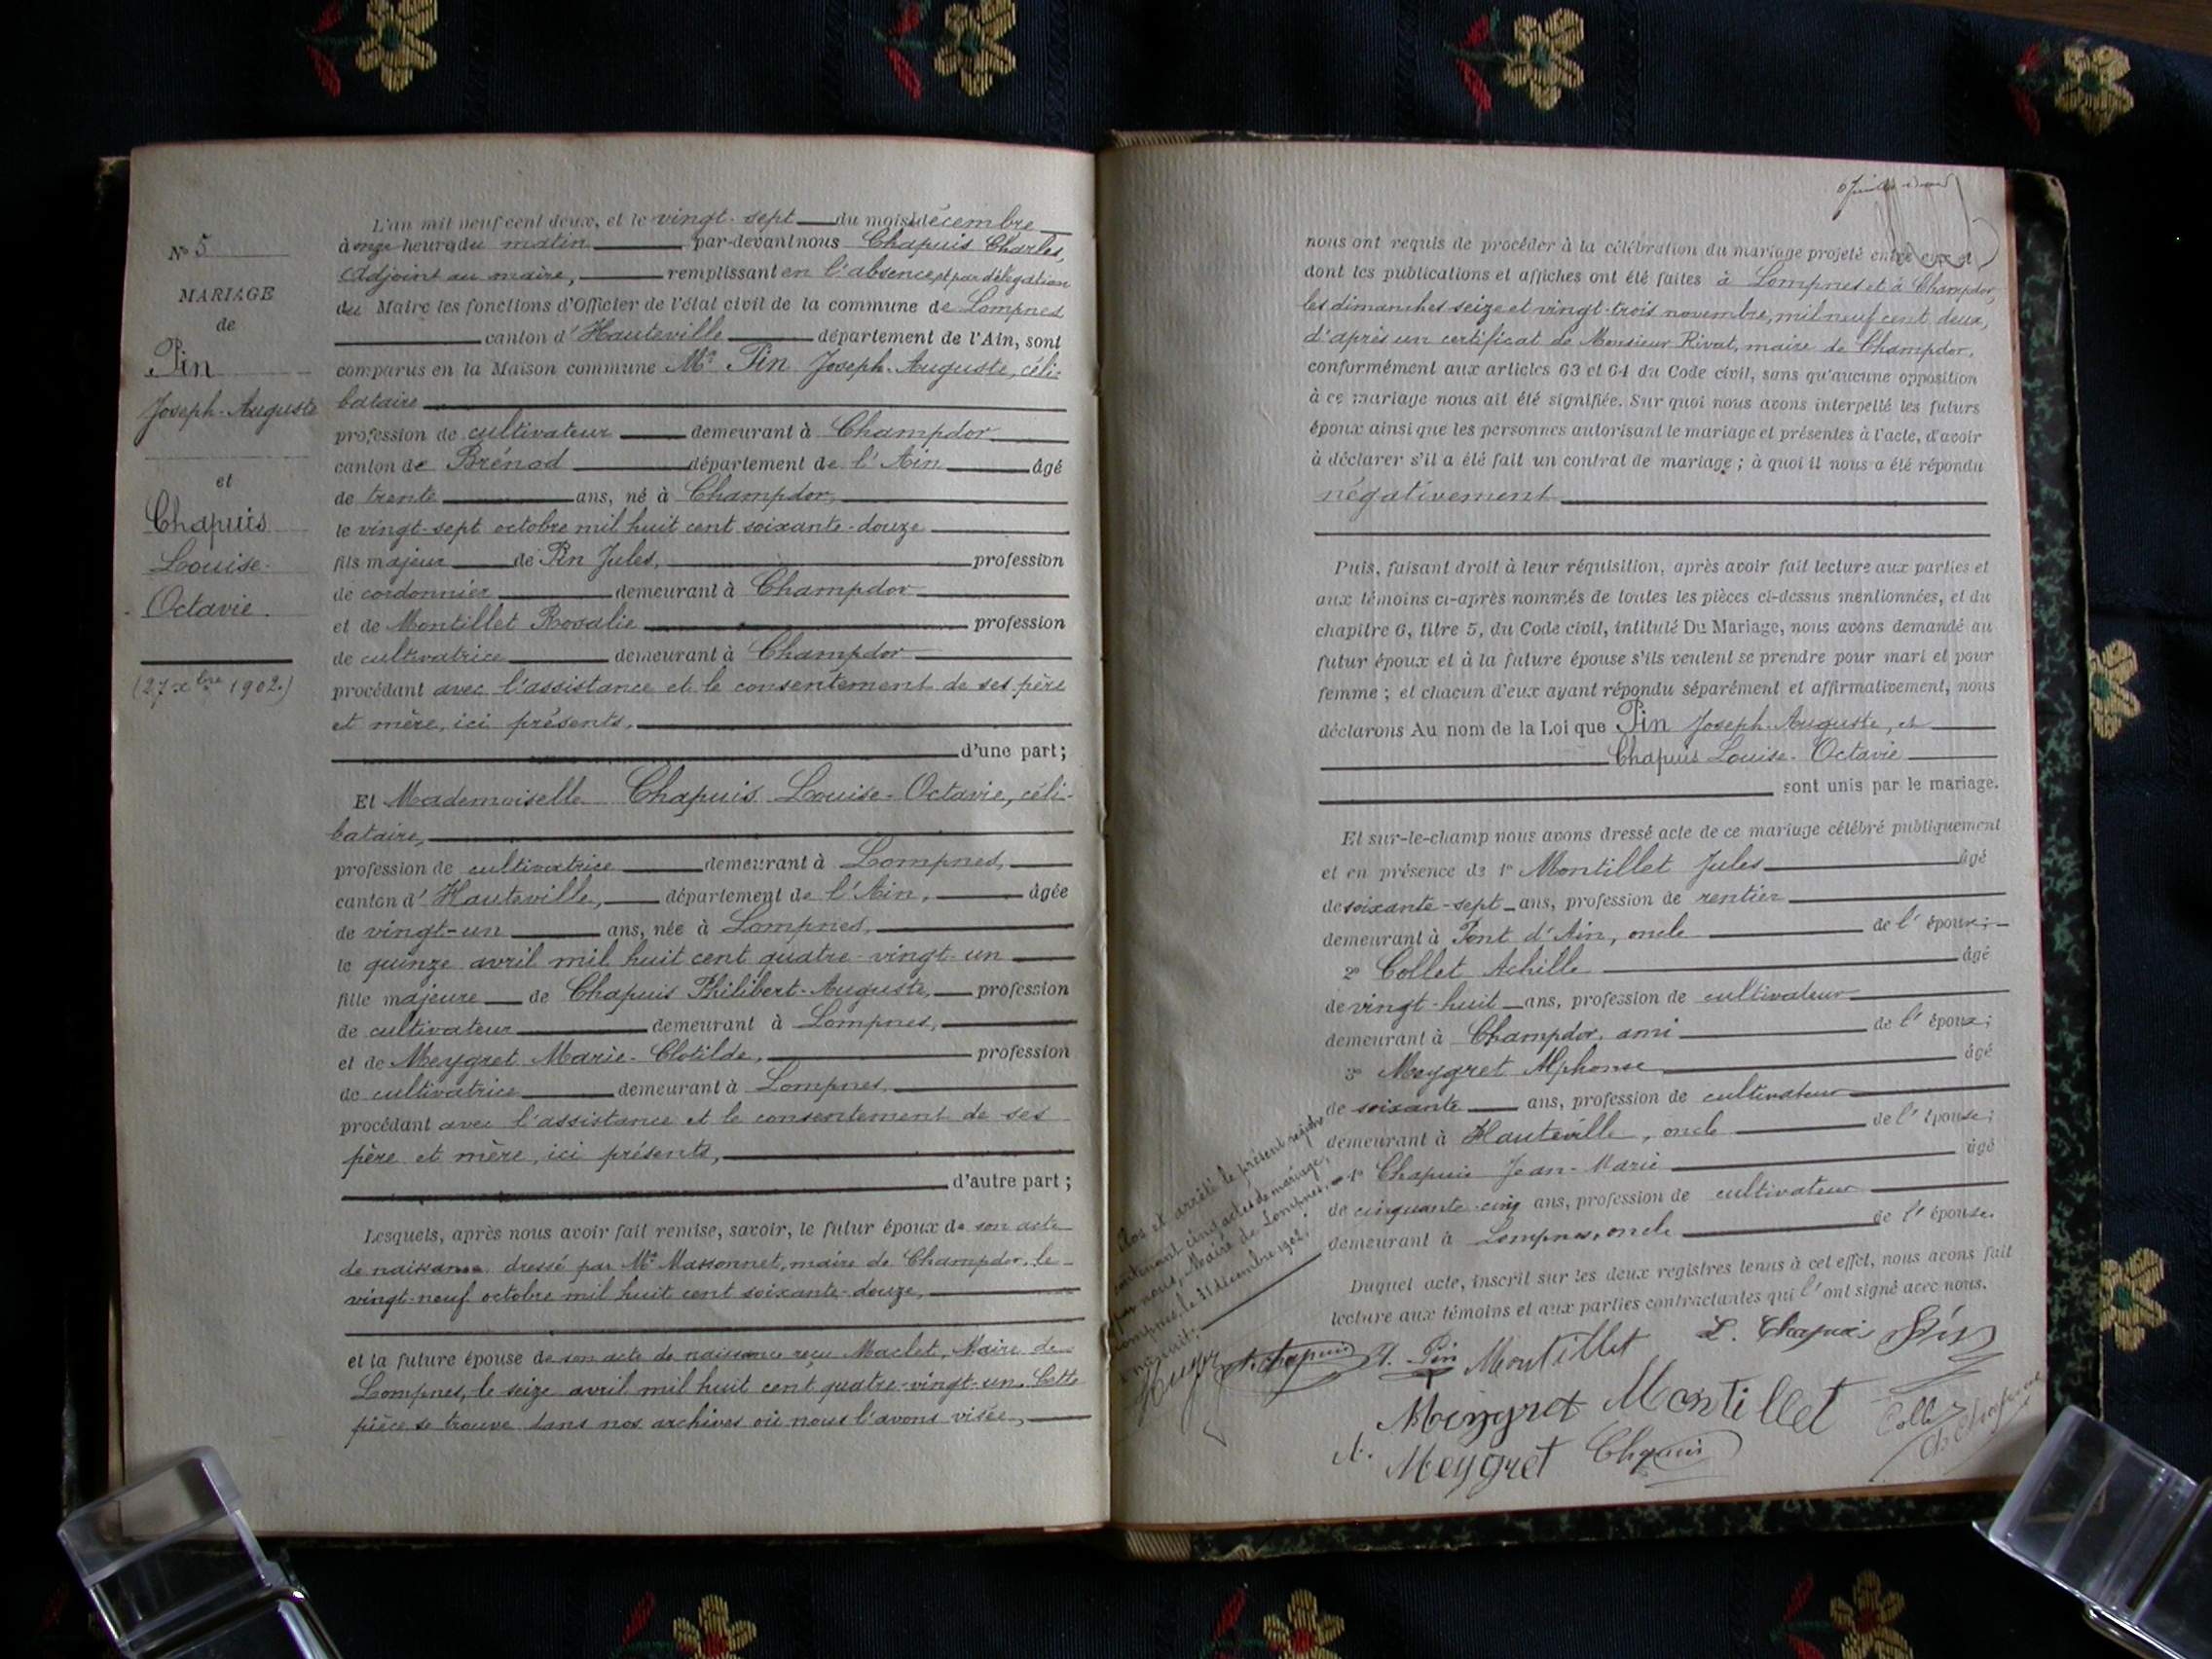 Nº 5
MARIAGE
de
Pin
Joseph-Auguste
et
Chapuis
Louise-
Octavie.
(27 xbre 1902.)
L'an mil neuf cent deux, et le vingt-sept du mois décembre
à onze heures du matin par-devant nous Chapuis Charles,
Adjoint au maire, remplissant en l'absence et par délégation
du Maire les fonctions d'Officier de l'état civil de la commune de Lompnes
canton d'Hauteville département de l'Ain, sont
comparus en la Maison commune Mr Pin Joseph-Auguste, céli-
bataire
profession de cultivateur demeurant à Champdor
canton de Brénod département de l'Ain âgé
de trente ans, né à Champdor,
le vingt-sept octobre mil huit cent soixante-douze
fils majeur de Pin Jules, profession
de cordonnier demeurant à Champdor
et de Montillet Rosalie profession
de cultivatrice demeurant à Champdor
procédant avec l'assistance et le consentement de ses père
et mère, ici présents,
d'une part;
Et Mademoiselle Chapuis Louise-Octavie, céli-
bataire,
profession de cultivatrice demeurant à Lompnes,
canton d'Hauteville, département de l'Ain, âgée
de vingt-un ans, née à Lompnes,
le quinze avril mil huit cent quatre-vingt-un
fille majeure de Chapuis Philibert-Auguste, profession
de cultivateur demeurant à Lompnes,
et de Meygret Marie-Clotilde, profession
de cultivatrice demeurant à Lompnes,
procédant avec l'assistance et le consentement de ses
père et mère, ici présents,
d'autre part;
Lesquels, après nous avoir fait remise, savoir, le futur époux de son acte
de naissance dressé par Mr Massonnet, maire de Champdor, le
vingt-neuf octobre mil huit cent soixante-douze,
et la future épouse de son acte de naissance reçu Maclet, Maire de
Lompnes, le seize avril mil huit cent quatre-vingt-un. Cette
pièce se trouve dans nos archives où nous l'avons visée,
nous ont requis de procéder à la célébration du mariage projeté entre eux et
dont les publications et affiches ont été faites à Lompnes et à Champdor,
les dimanches seize et vingt-trois novembre, mil neuf cent deux,
d'après un certificat de Monsieur Rivat, maire de Champdor.
conformément aux articles 63 et 64 du Code civil, sans qu'aucune opposition
à ce mariage nous ait été signifiée. Sur quoi nous avons interpellé les futurs
époux ainsi que les personnes autorisant le mariage et présentes à l'acte, d'avoir
à déclarer s'il a été fait un contrat de mariage; à quoi il nous a été répondu
négativement
Puis, faisant droit à leur réquisition, après avoir fait lecture aux parties et
aux témoins ci-après nommés de toutes les pièces ci-dessus mentionnées, et du
chapitre 6, titre 5, du Code civil, intitulé Du Mariage, nous avons demandé au
futur époux et à la future épouse s'ils veulent se prendre pour mari et pour
femme; et chacun d'eux ayant répondu séparément et affirmativement, nous
déclarons Au nom de la Loi que Pin Joseph-Auguste, et
Chapuis Louise-Octavie
sont unis par le mariage.
Et sur-le-champ nous avons dressé acte de ce mariage célébré publiquement
et en présence de 1º Montillet Jules âgé
de soixante-sept ans, profession de rentier
demeurant à Pont d'Ain, oncle de l'époux;
2º Collet Achille âgé
de vingt-huit ans, profession de cultivateur
demeurant à Champdor, ami de l'époux;
3º Meygret Alphonse âgé
de soixante ans, profession de cultivateur
demeurant à Hauteville, oncle de l'épouse;
4º Chapuis Jean-Marie âgé
de cinquante-cinq ans, profession de cultivateur
demeurant à Lompnes, oncle de l'épouse.
Duquel acte, inscrit sur les deux registres tenus à cet effet, nous avons fait
lecture aux témoins et aux parties contractantes qui l'ont signé avec nous.
Clos et arrêté le présent registre
contenant cinq actes de mariage,
par nous, Maire de Lompnes.
Lompnes, le 31 décembre 1902,
à minuit:
Chapuis Pin Montillet L. Chapuis Pin
Meygret Montillet Collet
A. Meygret Chapuis